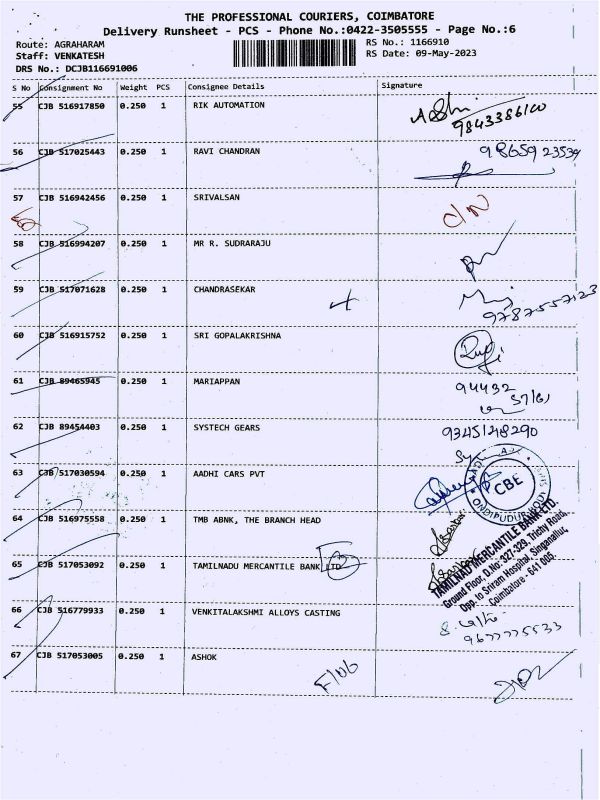 THE PROFESSIONAL COURIERS, COIMBATORE
Delivery Runsheet - PCS - Phone No.:0422-3505555 - Page No.:6
Route: AGRAHARAM
Staff: VENKATESH
DRS No.: DCJB116691006
RS No.: 1166910
RS Date: 09-May-2023
S No Consignment No Weight PCS Consignee Details Signature
55 CJB 516917850 0.250 1 RIK AUTOMATION
9843386100
56 CJB 517025443 0.250 1 RAVI CHANDRAN 98659 23539
57 CJB 516942456 0.250 1 SRIVALSAN C/N
58 CJB 516994207 0.250 1 MR R. SUDRARAJU
59 CJB 517071628 0.250 1 CHANDRASEKAR
9787557123
60 CJB 516915752 0.250 1 SRI GOPALAKRISHNA
61 CJB 89465945 0.250 1 MARIAPPAN 94432
57161
62 CJB 89454403 0.250 1 SYSTECH GEARS 9345148290
63 CJB 517030594 0.250 1 AADHI CARS PVT
CBE
ONDIPUDUR
64 CJB 516975558 0.250 1 TMB ABNK, THE BRANCH HEAD
65 CJB 517053092 0.250 1 TAMILNADU MERCANTILE BANK LTD
TAMILNAD MERCANTILE BANK LTD.
Ground Floor, D.No: 327-329, Trichy Road,
Opp. to Sriram Hospital, Singanallur,
Coimbatore - 641 005.
66 CJB 516779933 0.250 1 VENKITALAKSHMI ALLOYS CASTING
9677775533
67 CJB 517053005 0.250 1 ASHOK
F/06